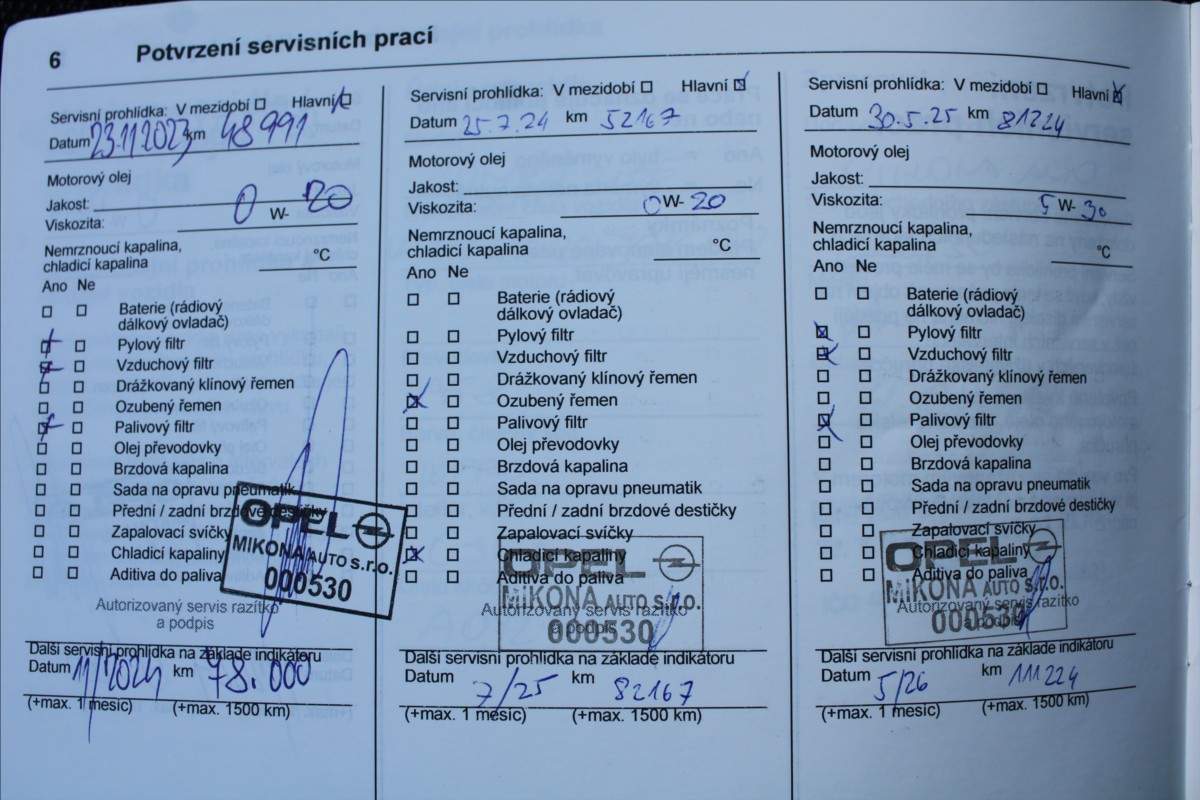 6 Potvrzení servisních prací
Servisní prohlídka: V mezidobí ☐ Hlavní ☒
Datum 23.11.2023 km 48991
Motorový olej
Jakost:
Viskozita: 0 W- 20
Nemrznoucí kapalina,
chladicí kapalina °C
Ano Ne
☐ ☐ Baterie (rádiový
dálkový ovladač)
☒ ☐ Pylový filtr
☒ ☐ Vzduchový filtr
☐ ☐ Drážkovaný klínový řemen
☐ ☐ Ozubený řemen
☒ ☐ Palivový filtr
☐ ☐ Olej převodovky
☐ ☐ Brzdová kapalina
☐ ☐ Sada na opravu pneumatik
☐ ☐ Přední / zadní brzdové destičky
☐ ☐ Zapalovací svíčky
☐ ☐ Chladicí kapaliny
☐ ☐ Aditiva do paliva
OPEL
MIKONA AUTO s.r.o.
000530
Autorizovaný servis razítko
a podpis
Další servisní prohlídka na základe indikátoru
Datum 11/2024 km 78.000
(+max. 1 mesíc) (+max. 1500 km)
Servisní prohlídka: V mezidobí ☐ Hlavní ☒
Datum 25.7.24 km 52167
Motorový olej
Jakost:
Viskozita: 0 W- 20
Nemrznoucí kapalina,
chladicí kapalina °C
Ano Ne
☐ ☐ Baterie (rádiový
dálkový ovladač)
☐ ☐ Pylový filtr
☐ ☐ Vzduchový filtr
☐ ☐ Drážkovaný klínový řemen
☒ ☐ Ozubený řemen
☐ ☐ Palivový filtr
☐ ☐ Olej převodovky
☐ ☐ Brzdová kapalina
☐ ☐ Sada na opravu pneumatik
☐ ☐ Přední / zadní brzdové destičky
☐ ☐ Zapalovací svíčky
☒ ☐ Chladicí kapaliny
☐ ☐ Aditiva do paliva
OPEL
MIKONA AUTO s.r.o.
000530
Autorizovaný servis razítko
a podpis
Další servisní prohlídka na základe indikátoru
Datum 7/25 km 82167
(+max. 1 mesíc) (+max. 1500 km)
Servisní prohlídka: V mezidobí ☐ Hlavní ☒
Datum 30.5.25 km 81224
Motorový olej
Jakost:
Viskozita: 5 W- 30
Nemrznoucí kapalina,
chladicí kapalina °C
Ano Ne
☐ ☐ Baterie (rádiový
dálkový ovladač)
☒ ☐ Pylový filtr
☒ ☐ Vzduchový filtr
☐ ☐ Drážkovaný klínový řemen
☐ ☐ Ozubený řemen
☒ ☐ Palivový filtr
☐ ☐ Olej převodovky
☐ ☐ Brzdová kapalina
☐ ☐ Sada na opravu pneumatik
☐ ☐ Přední / zadní brzdové destičky
☐ ☐ Zapalovací svíčky
☐ ☐ Chladicí kapaliny
☐ ☐ Aditiva do paliva
OPEL
MIKONA AUTO s.r.o.
000530
Autorizovaný servis razítko
a podpis
Další servisní prohlídka na základe indikátoru
Datum 5/26 km 111224
(+max. 1 mesíc) (+max. 1500 km)